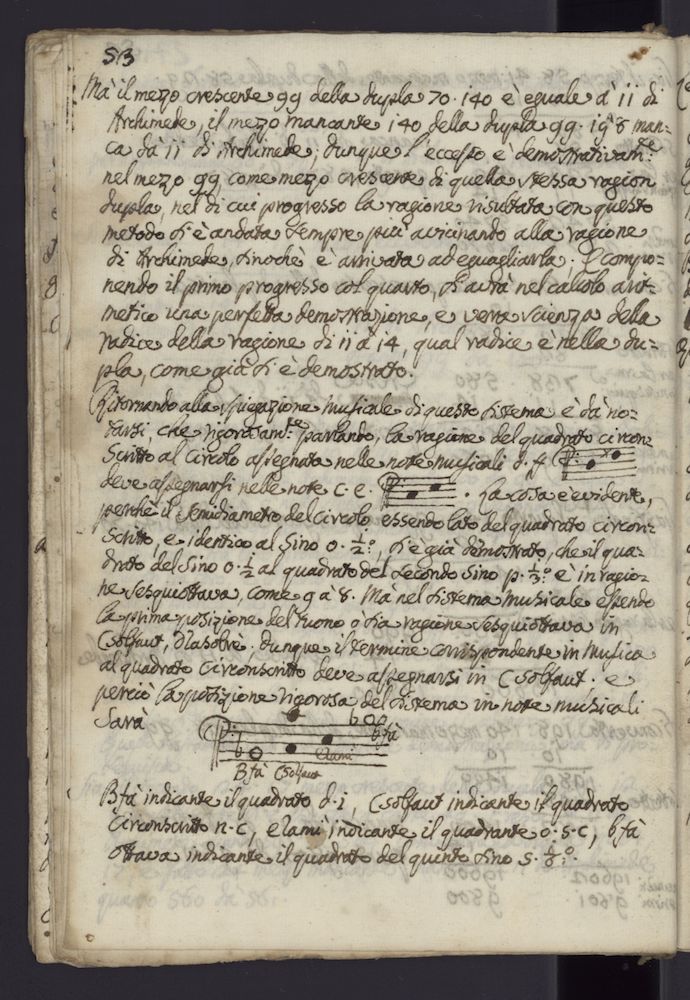 53
Mà il mezzo crescente 99 della dupla 70 · 140 è eguale à 11 di
Archimede, il mezzo mancante 140 della dupla 99 · 198 man=
ca dà 11 di Archimede; dunque l'eccesso è demostrativam.te
nel mezzo 99, come mezzo crescente di quella stessa ragion
dupla, nel di cui progresso la ragione risultata con questo
metodo si è andata sempre più avvicinando alla ragione
di Archimede, sinochè è arrivata ad eguagliarla; E compo=
nendo il primo progresso col quarto, si avrà nel calcolo arit=
metico una perfetta demostrazione, e vera scienza della
radice della ragione di 11 à 14, qual radice è nella du=
pla, come già si è demostrato.
Ritornando alla spiegazione musicale di questo sistema è dà no=
tarsi, che rigorosam.te parlando, la ragione del quadrato circon=
scritto al circolo assegnata nelle note musicali d · f
deve assegnarsi nelle note c · e · . La cosa è evidente,
perchè il semidiametro del circolo essendo lato del quadrato circon=
scritto, e identico al sino o · 1/2°, si è già demostrato, che il qua=
drato del sino o · 1/2 al quadrato del secondo sino p · 1/3° è in ragio=
ne sesquiottava, come 9 à 8. Mà nel sistema musicale essendo
la prima posizione del tuono o sia ragione sesquiottava in
Csolfaut, Dlasolrè · dunque il termine corrispondente in Musica
al quadrato circonscritto deve assegnarsi in Csolfaut · e
perciò la posizione rigorosa del sistema in note musicali
sarà
b fà
elami
B fà Csolfaut
B fà indicante il quadrato d · i, Csolfaut indicante il quadrato
circonscritto n · c, elamì indicante il quadrante o · s · c, b fà
ottava indicante il quadrato del quinto sino s · 1/6° ·